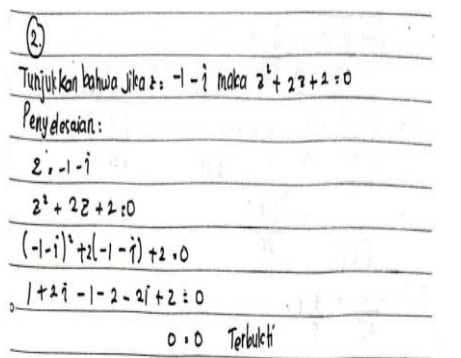 2.
Tunjukkan bahwa jika z = -1 - i maka z² + 2z + 2 = 0
Penyelesaian:
z = -1 - i
z² + 2z + 2 = 0
(-1-i)² + 2(-1-i) + 2 = 0
1 + 2i - 1 - 2 - 2i + 2 = 0
0 = 0 Terbukti